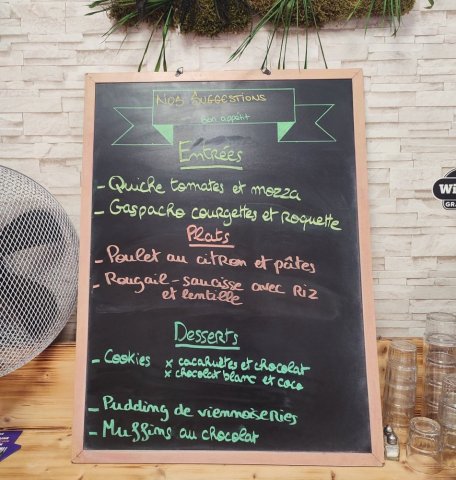 Nos Suggestions
Bon appétit
Entrées
- Quiche tomates et mozza
- Gaspacho courgettes et Roquette
Plats
- Poulet au citron et pâtes
- Rougail-saucisse avec Riz
et lentille
Desserts
- Cookies x cacahuètes et chocolat
x chocolat blanc et coco
- Pudding de viennoiseries
- Muffins au chocolat